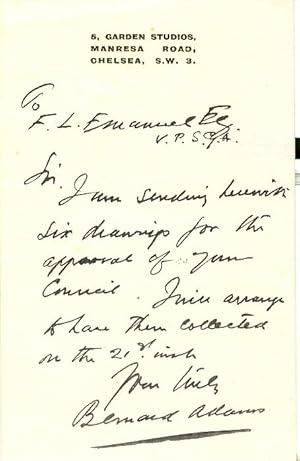 5, GARDEN STUDIOS,
MANRESA ROAD,
CHELSEA, S.W. 3.
To
F. L. Emanuel Esq.
V. P. S. G. A.
Sir,
I am sending herewith
six drawings for the
approval of your
Council. I will arrange
to have them collected
on the 21st inst
Yours truly
Bernard Adams